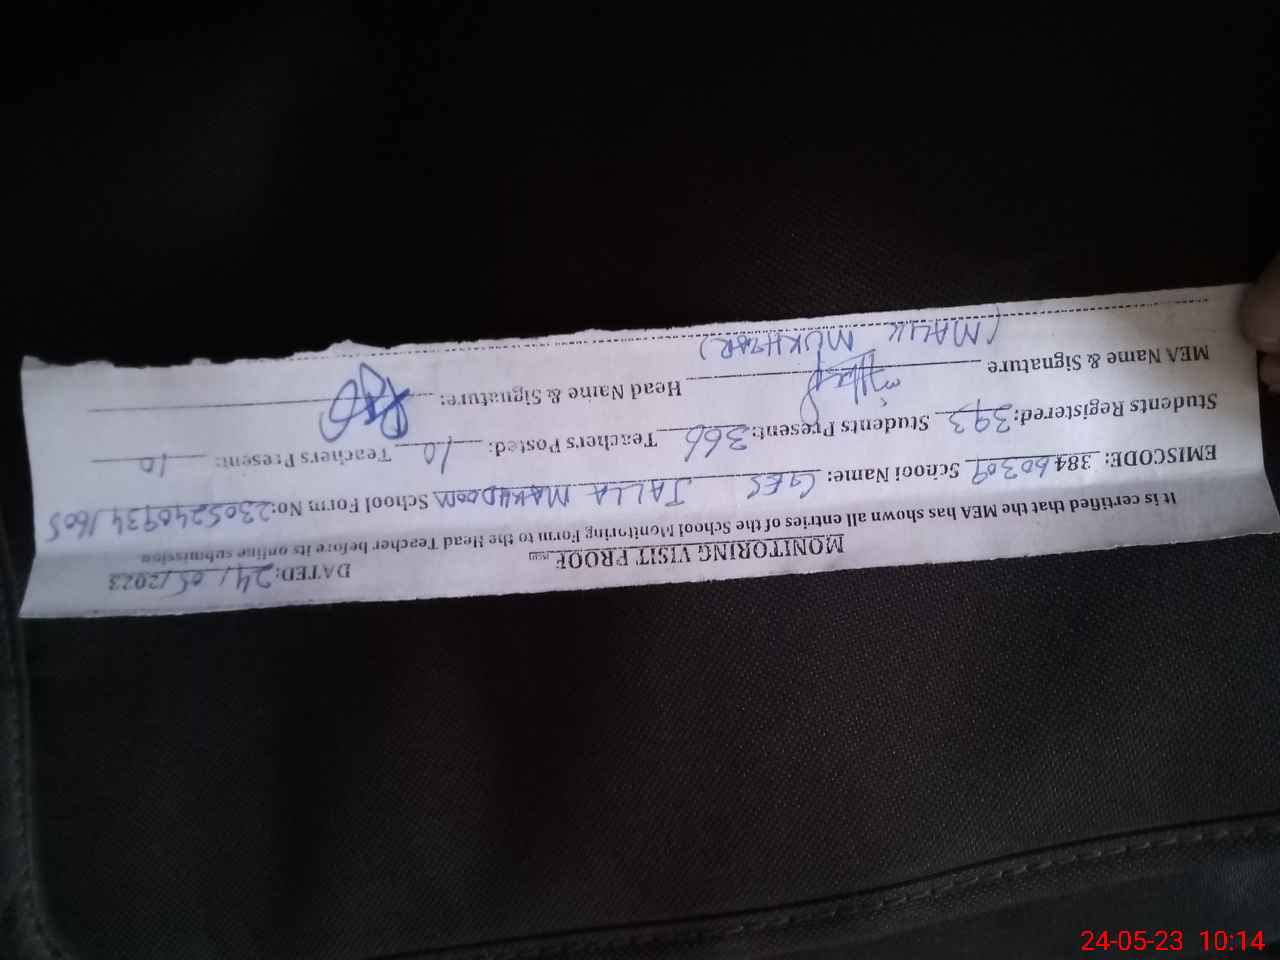 MONITORING VISIT PROOF
DATED: 24/05/2023
It is certified that the MEA has shown all entries of the School Monitoring Form to the Head Teacher before its online submission
EMISCODE: 38460309 School Name: GES JALLA MAKHDOOM School Form No: 23052409341605
Students Registered: 393 Students Present: 366 Teachers Posted: 10 Teachers Present: 10
MEA Name & Signature Head Name & Signature:
(MALIK MUKHTAR)
24-05-23 10:14